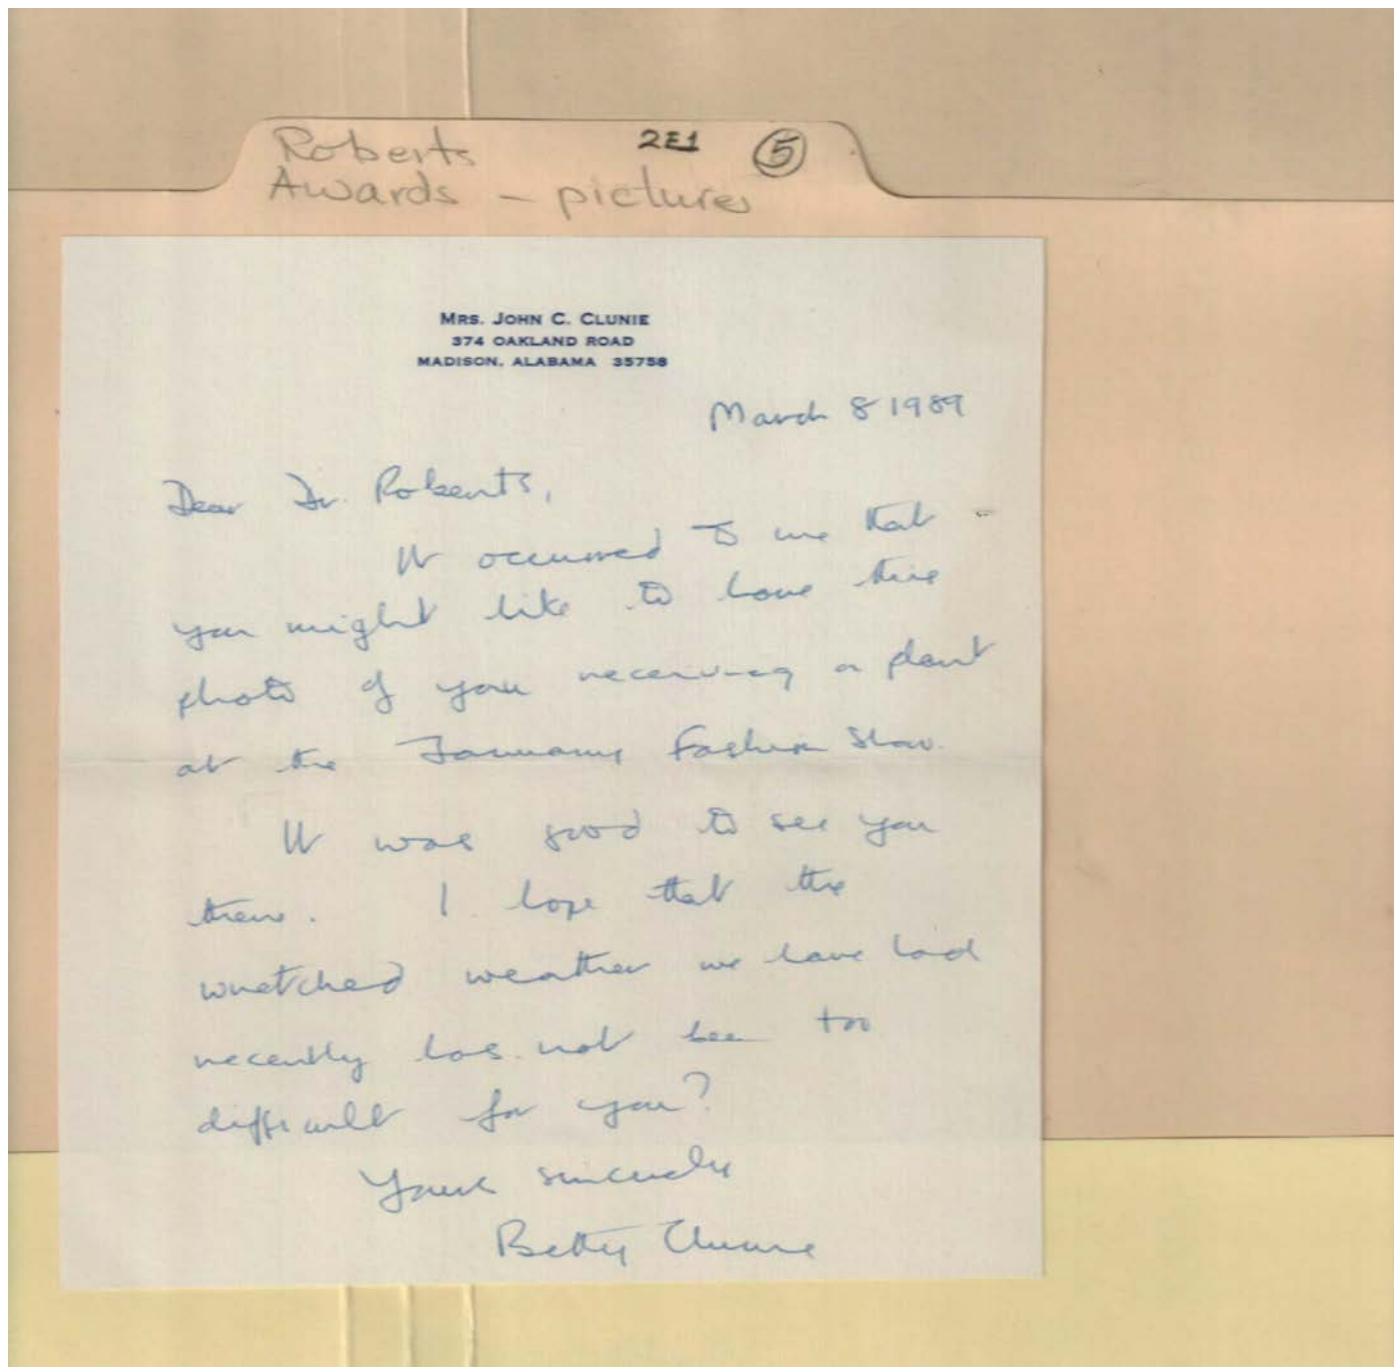 Roberts 2E1 5
Awards - pictures
MRS. JOHN C. CLUNIE
374 OAKLAND ROAD
MADISON, ALABAMA 35758
March 8 1989
Dear Dr. Roberts,
It occurred to me that
you might like to have this
photo of you receiving a plant
at the January Fashion Show.
It was good to see you
there. I hope that the
wretched weather we have had
recently has not been too
difficult for you?
Yours sincerely
Betty Clunie